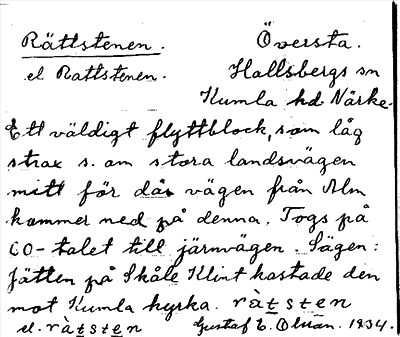 Rättstenen. Översta.
el Rattstenen. Hallsbergs sn
Kumla hd Närke.
Ett väldigt flyttblock, som låg
strax s. om stora landsvägen
mitt för där vägen från Alm
kommer ned på denna. Togs på
60-talet till järnvägen. Sägen:
Jätten på Skåle Klint kastade den
mot Kumla kyrka. ràtsten
el. ràtsten Gustaf E. 1934.